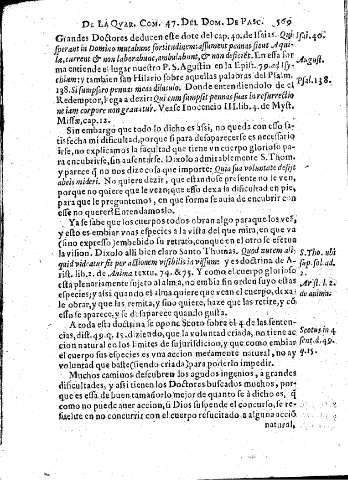 DE LA QVAR. COM. 47. DEL DOM. DE PASC. 569
Grandes Doctores deducen este dote del cap. 40. de Isaias. Qui
sperant in Domino mutabunt fortitudinem: assument pennas sicut Aqui
læ, current & non laborabunt, ambulabunt, & non deficient. En essa for
ma entiende el lugar nuestro P. S. Agustin en la Epist.
y tambien san Hilario sobre aquellas palabras del Psalm.
138. Si sumpsero pennas meas diluculo. Donde entendiendolo de el
Redemptor, llega a dezir: Qui cum sumpsit pennas suas in resurrectio
ne iam corpore non grauatur. Vease Inocencio III. lib. 4. de Myst.
Missæ, cap. 12.
Sin embargo que todo lo dicho es assi, no queda con esso sa-
tisfecha mi dificultad, porque si para desaparecerse es necessario
irse, no explicamos la facultad que tiene vn cuerpo glorioso pa-
ra encubrirse, sin ausentarse. Dixolo admirablemente S. Thom.
y parece q̃ no nos dize cosa que importe: Quia sua voluntate desijt
abeis videri. No quiere dezir, que estandose presente no le ven,
porque no quiere que le vean; que esso dexa la dificultad en pie,
para que le preguntemos, en que forma se auia de encubrir con
esse no querer? Entendamoslo.
Ya se sabe que los cuerpos todos obran algo para que los veã,
y esto es embiar vnas especies a la vista del que mira, en que va
(sino expresso) embebido su retrato, conque en el otro se efetua
la vision. Dixolo alli bien claro Santo Thomas. Quod autem ali-
quid videatur fit per actionem visibilis in visum: y es doctrina de A-
rist. lib. 2. de Anima textu. 74. & 75. Y como el cuerpo glorioso
està plenariamente sujeto al alma, no embia sin orden suyo estas
especies; y assi quando el alma quiere que veen el cuerpo, dexa-
le obrar, y que las remita, y sino quiere, haze que las retire, y cõ
esso se aparece, y se desaparece quando gusta.
A toda esta doctrina se opone Scoto sobre el 4. de las senten-
cias, dist. 49. q. 15. diziendo, que la voluntad criada, no tiene ac
cion natural en los limites de su jurisdicion, y que como embiar
el cuerpo sus especies es vna accion meramente natural, no ay
voluntad que baste (siendo criada) para poderlo impedir.
Muchos caminos descubren los agudos ingenios, a grandes
dificultades, y assi tienen los Doctores buscados muchos, por-
que es essa de buen tamaño: lo mejor de quanto se à dicho es, q̃
como no puede auer accion, si Dios suspende el concurso, se re-
suelue en no concurrir con el cuerpo resucitado a alguna acciõ
natural,
Isai. 40.
August.
Psal. 138.
S. Tho. vbi
sup. sol. ad.
2.
Arist. l. 2.
de anima.
Scotus in 4
sent. d. 49.
q. 15.